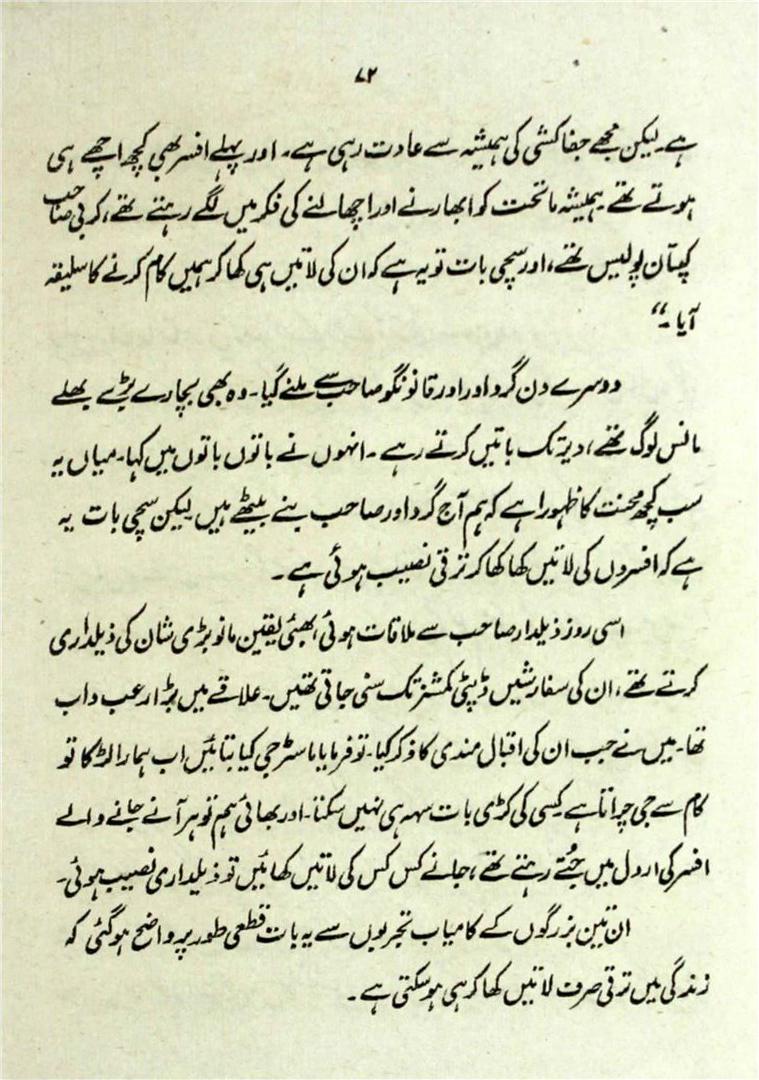 ۷۲
ہے۔ لیکن مجھے جفاکشی کی ہمیشہ سے عادت رہی ہے۔ اور پہلے افسر بھی کچھ اچھے ہی
ہوتے تھے ہمیشہ ماتحت کو ابھارنے اور اچھالنے کی فکر میں لگے رہتے تھے، کربی صاحب
کپتان پولیس تھے، اور سچی بات تو یہ ہے کہ ان کی لاتیں ہی کھا کر ہمیں کام کرنے کا سلیقہ
آیا۔“
دوسرے دن گرداور اور قانونگو صاحب سے ملنے گیا۔ وہ بھی بیچارے بڑے بھلے
مانس لوگ تھے، دیر تک باتیں کرتے رہے۔ انہوں نے باتوں باتوں میں کہا۔ میاں یہ
سب کچھ محنت کا ظہورا ہے کہ ہم آج گرداور صاحب بنے بیٹھے ہیں لیکن سچی بات یہ
ہے کہ افسروں کی لاتیں کھا کھا کر ترقی نصیب ہوئی ہے۔
اسی روز ذیلدار صاحب سے ملاقات ہوئی، بھئی یقین مانو بڑی شان کی ذیلداری
کرتے تھے، ان کی سفارشیں ڈپٹی کمشنر تک سنی جاتی تھیں۔ علاقے میں بڑا رعب داب
تھا۔ میں نے جب ان کی اقبال مندی کا ذکر کیا۔ تو فرمایا ماسٹر جی کیا بتائیں اب ہمارا لڑکا تو
کام سے جی چراتا ہے کسی کی کڑی بات سہہ ہی نہیں سکتا۔ اور بھائی ہم تو ہر آنے جانے والے
افسر کی اردل میں جُتے رہتے تھے، جانے کس کس کی لاتیں کھائیں تو ذیلداری نصیب ہوئی۔
ان تین بزرگوں کے کامیاب تجربوں سے یہ بات قطعی طور پر واضح ہو گئی کہ
زندگی میں ترقی صرف لاتیں کھا کر ہی ہو سکتی ہے۔